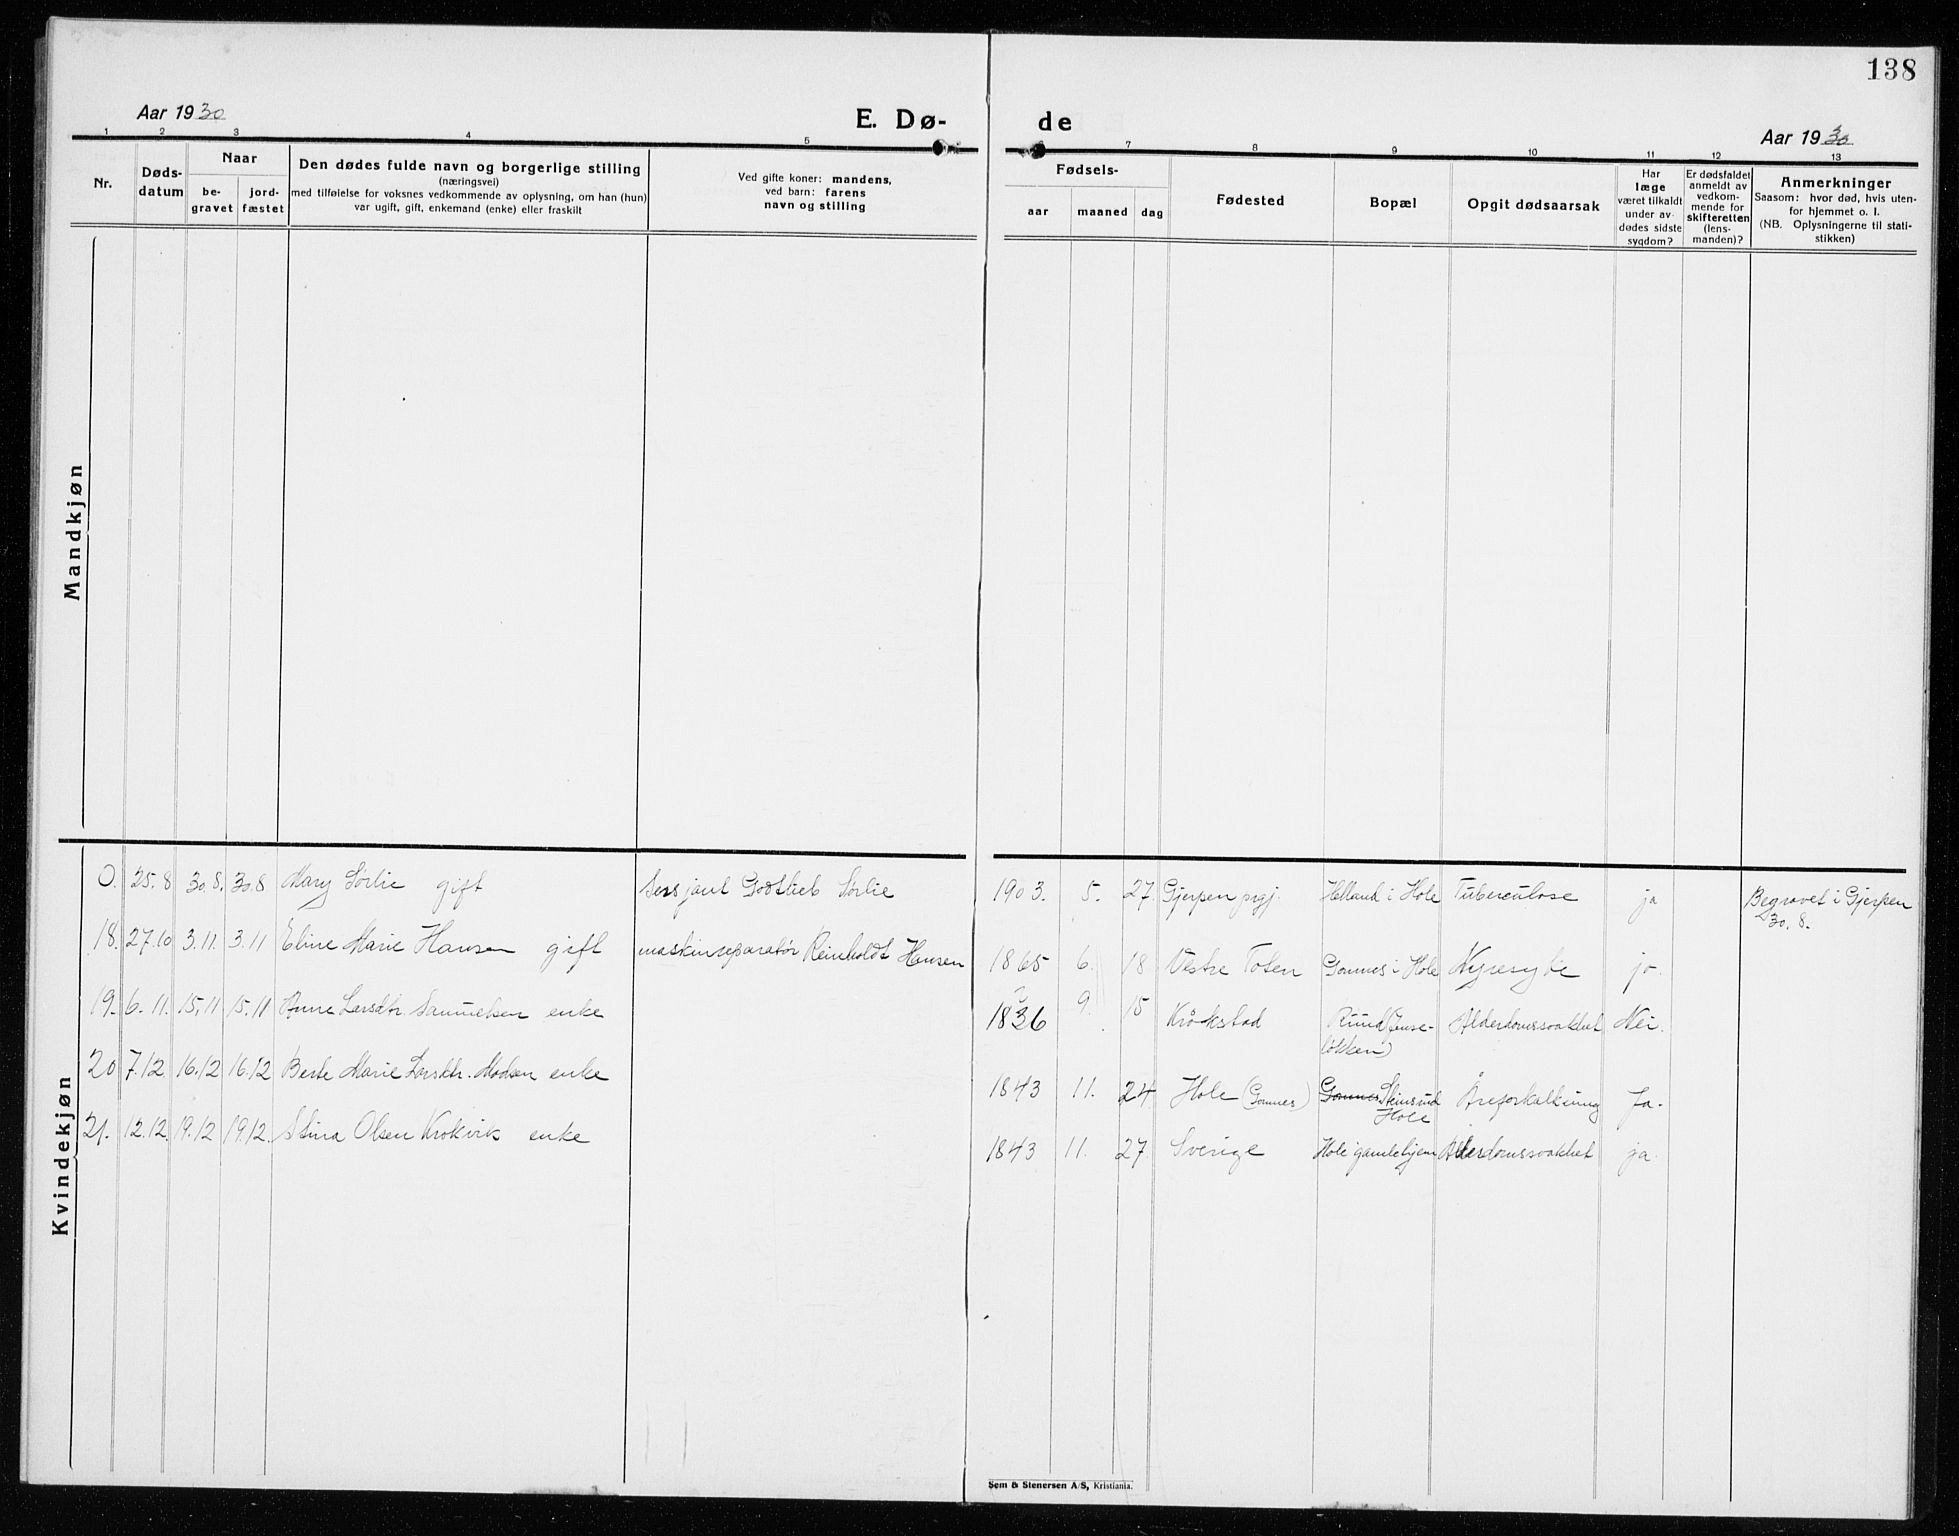 138
Aar 1930
E. Dø-
de
Aar 1930
1 2 3 4 5
7 8 9 10 11 12 13
Nr.
Døds-
datum
Naar
be-
gravet
jord-
fæstet
Den dødes fulde navn og borgerlige stilling
(næringsvei)
med tilføielse for voksnes vedkommende av oplysning, om han (hun)
var ugift, gift, enkemand (enke) eller fraskilt
Ved gifte koner: mandens,
ved barn: farens
navn og stilling
Fødsels-
aar maaned dag
Fødested
Bopæl
Opgit dødsaarsak
Har
læge
været tilkaldt
under av-
dødes sidste
sygdom?
Er dødsfaldet
anmeldt av
vedkom-
mende for
skifteretten
(lens-
manden)?
Anmerkninger
Saasom: hvor død, hvis uten-
for hjemmet o. l.
(NB. Oplysningerne til stati-
stikken)
Mandkjøn
Kvindekjøn
0. 25.8 30.8. 30.8 Mary Sørlie gift Sersjant Godtlieb Sørlie 1903. 5. 27. Gjerpen prgj. Helland i Hole Tuberculose ja Begravet i Gjerpen
30.8.
18. 27.10 3.11. 3.11 Eline Marie Hansen gift maskinreparatør Reinholdt Hansen 1865 6. 18 Vestre Toten Gomnes i Hole Nyresyke ja.
19. 6.11. 15.11 15.11 Anne Larsdtr. Samuelsen enke 1836 9. 15 Kråkstad Ruud (Jense-
løkken) Alderdomssvakhet Nei.
20 7.12. 16.12 16.12 Berte Marie Larsdtr. Madsen enke 1843 11. 24 Hole (Gomnes) Gomnes Steinsrud
Hole Åreforkalkning Ja.
21. 12.12 19.12 19.12. Stina Olsen Krokvik enke 1843 11. 27. Sverige Hole gamlehjem Alderdomssvakhet ja.
Sem & Stenersen A/S, Kristiania.